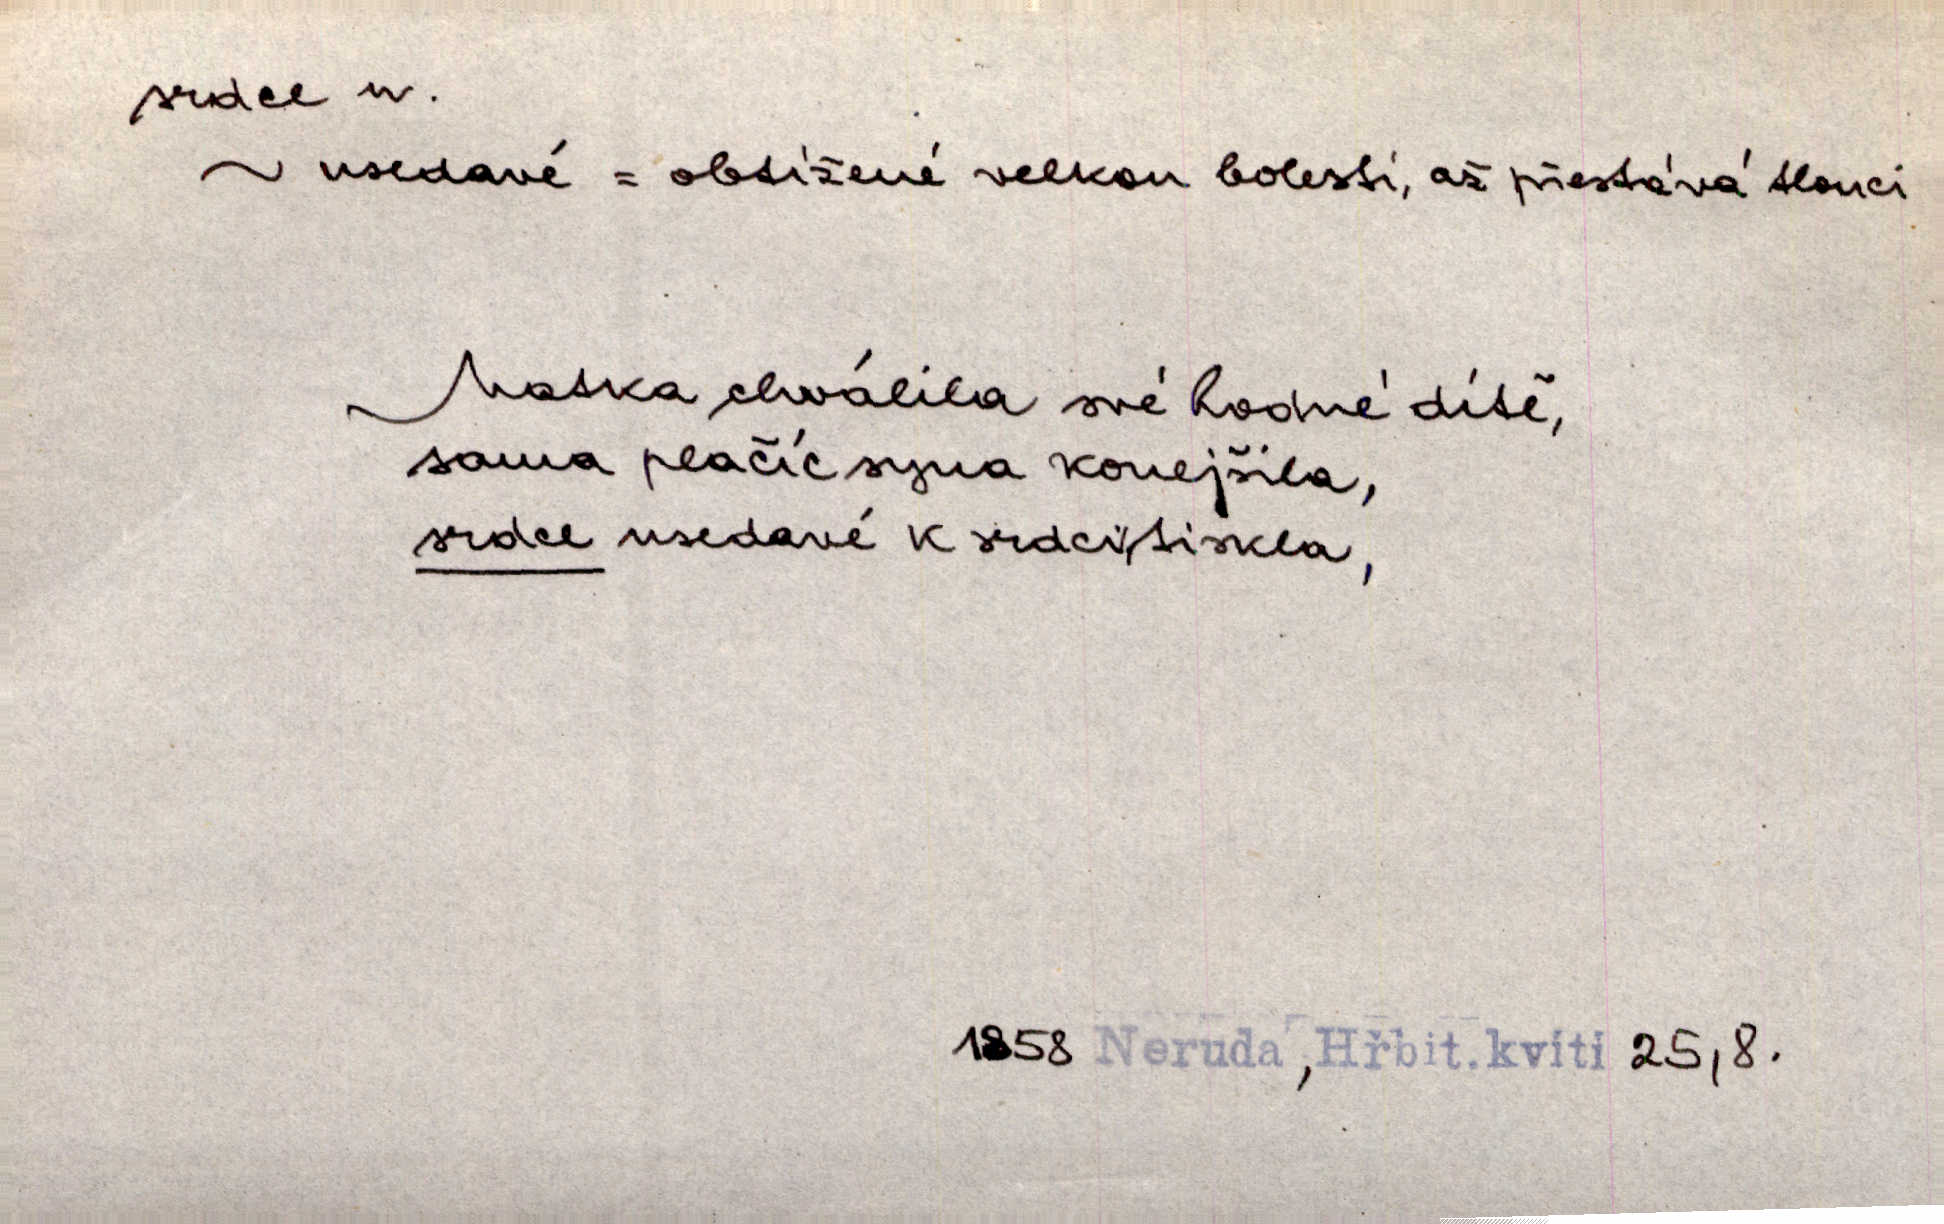 srdce n.
~ usedavé = obtížené velkou bolestí, až přestává tlouci
Matka chválila své hodné dítě,
sama plačíc syna konejšila,
srdce usedavé k srdci tiskla,
1858 Neruda, Hřbit.kvítí 25,8.